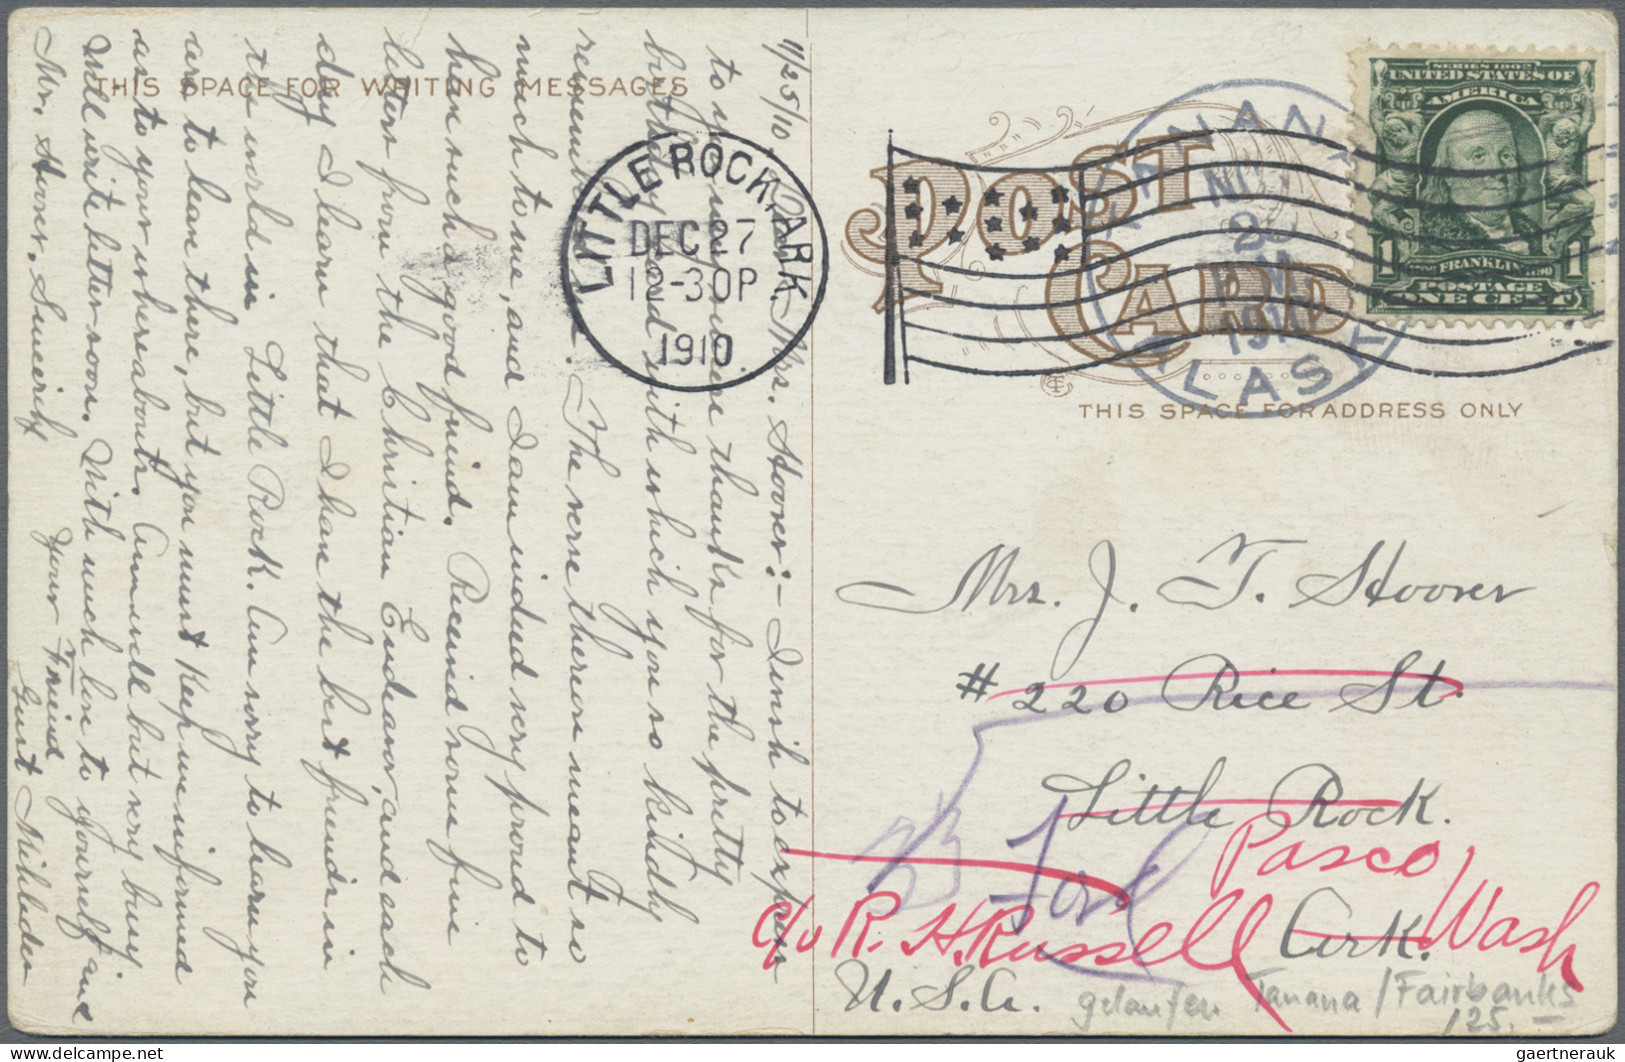 THIS SPACE FOR WRITING MESSAGES
11/25/10. Mrs. Hoover:- I wish to express
to you my sincere thanks for the pretty
birthday card with which you so kindly
remembered me. The verse thereon meant so
much to me, and I am indeed very proud to
have such a good friend. Received some fine
letters from the Christian Endeavor, and each
day I learn that I have the best friends in
the world in Little Rock. Am sorry to learn you
are to leave there, but you must keep me informed
as to your whereabouts. Am well but very busy
Will write letter soon. With much love to yourself and
Mr. Hoover. Sincerely
your Friend
LITTLE ROCK, ARK.
DEC 27
12-30P
1910
POST CARD
TANANA
NOV
1910
ALASKA
SERIES 1902
UNITED STATES OF
AMERICA
1 FRANKLIN 1790 1
POSTAGE
ONE CENT
THIS SPACE FOR ADDRESS ONLY
Mrs. J. T. Hoover
# 220 Rice St.
Little Rock.
Pasco
c/o R. H. Russell Ark. Wash
U. S. A.
gelaufen Tanana / Fairbanks
125.—
gaertnerauk